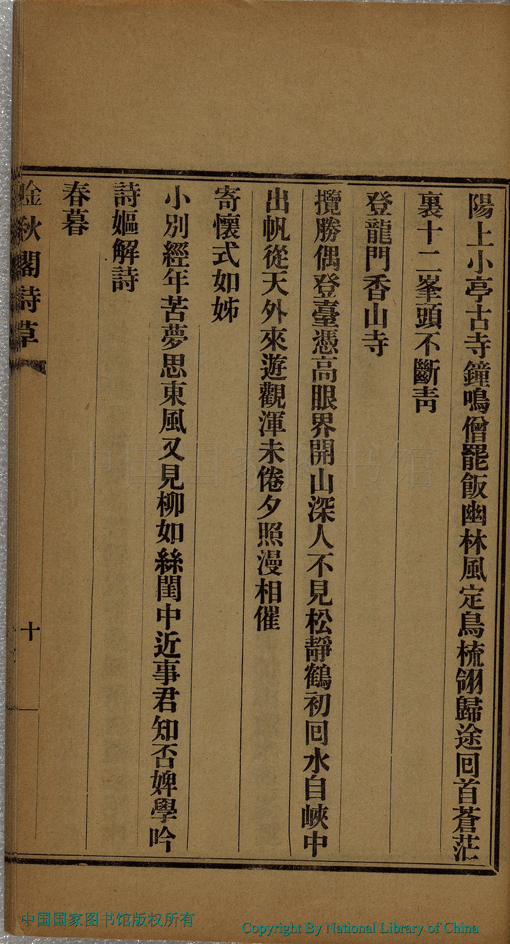 陽上小亭古寺鐘鳴僧罷飯幽林風定鳥梳翎歸途回首蒼茫
裏十二峯頭不斷靑
登龍門香山寺
攬勝偶登臺憑高眼界開山深人不見松靜鶴初回水自峽中
出帆從天外來遊觀渾未倦夕照漫相催
寄懷式如姊
小別經年苦夢思東風又見柳如絲閨中近事君知否婢學吟
詩嫗解詩
春暮
金秋閣詩草
十
中国国家图书馆
中国国家图书馆版权所有
Copyright By National Library of China